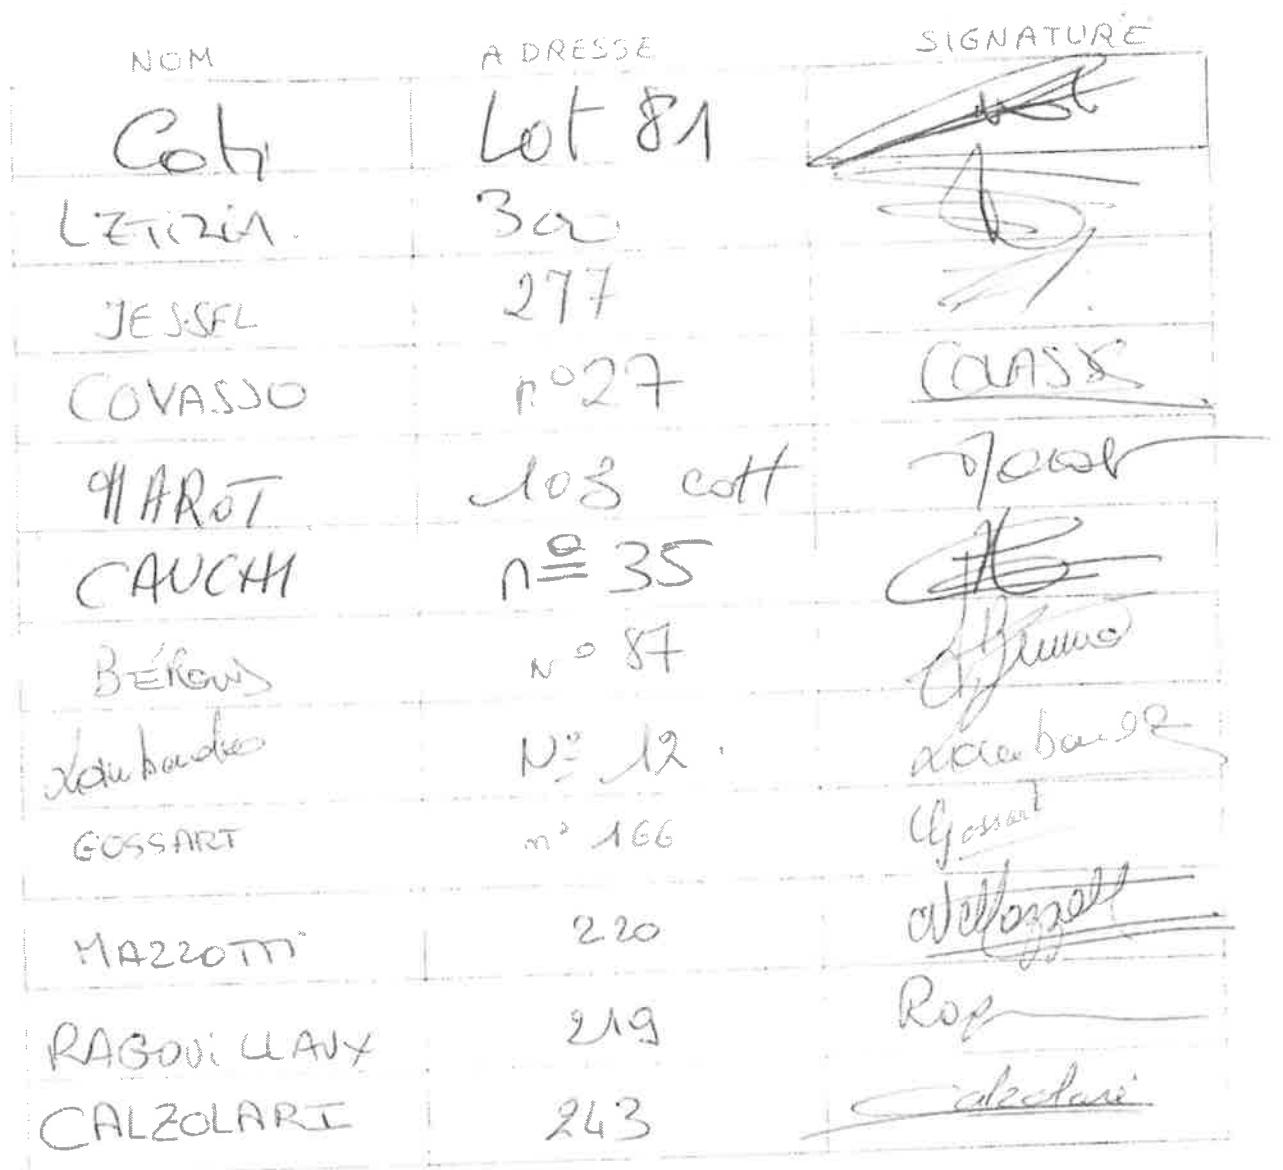 NOM ADRESSE SIGNATURE
Coti Lot 81
LETIZIA. 300
JESSEL 277
COVASSO n°27
MAROT 103 cott Marot
CAUCHI nº 35
BÉROUD N° 87
Lombardo Nº 12.
GOSSART n° 166 Gossart
MAZZOTTI 220 Mazzotti
RAGOUILLAUX 219
CALZOLARI 243 Calzolari